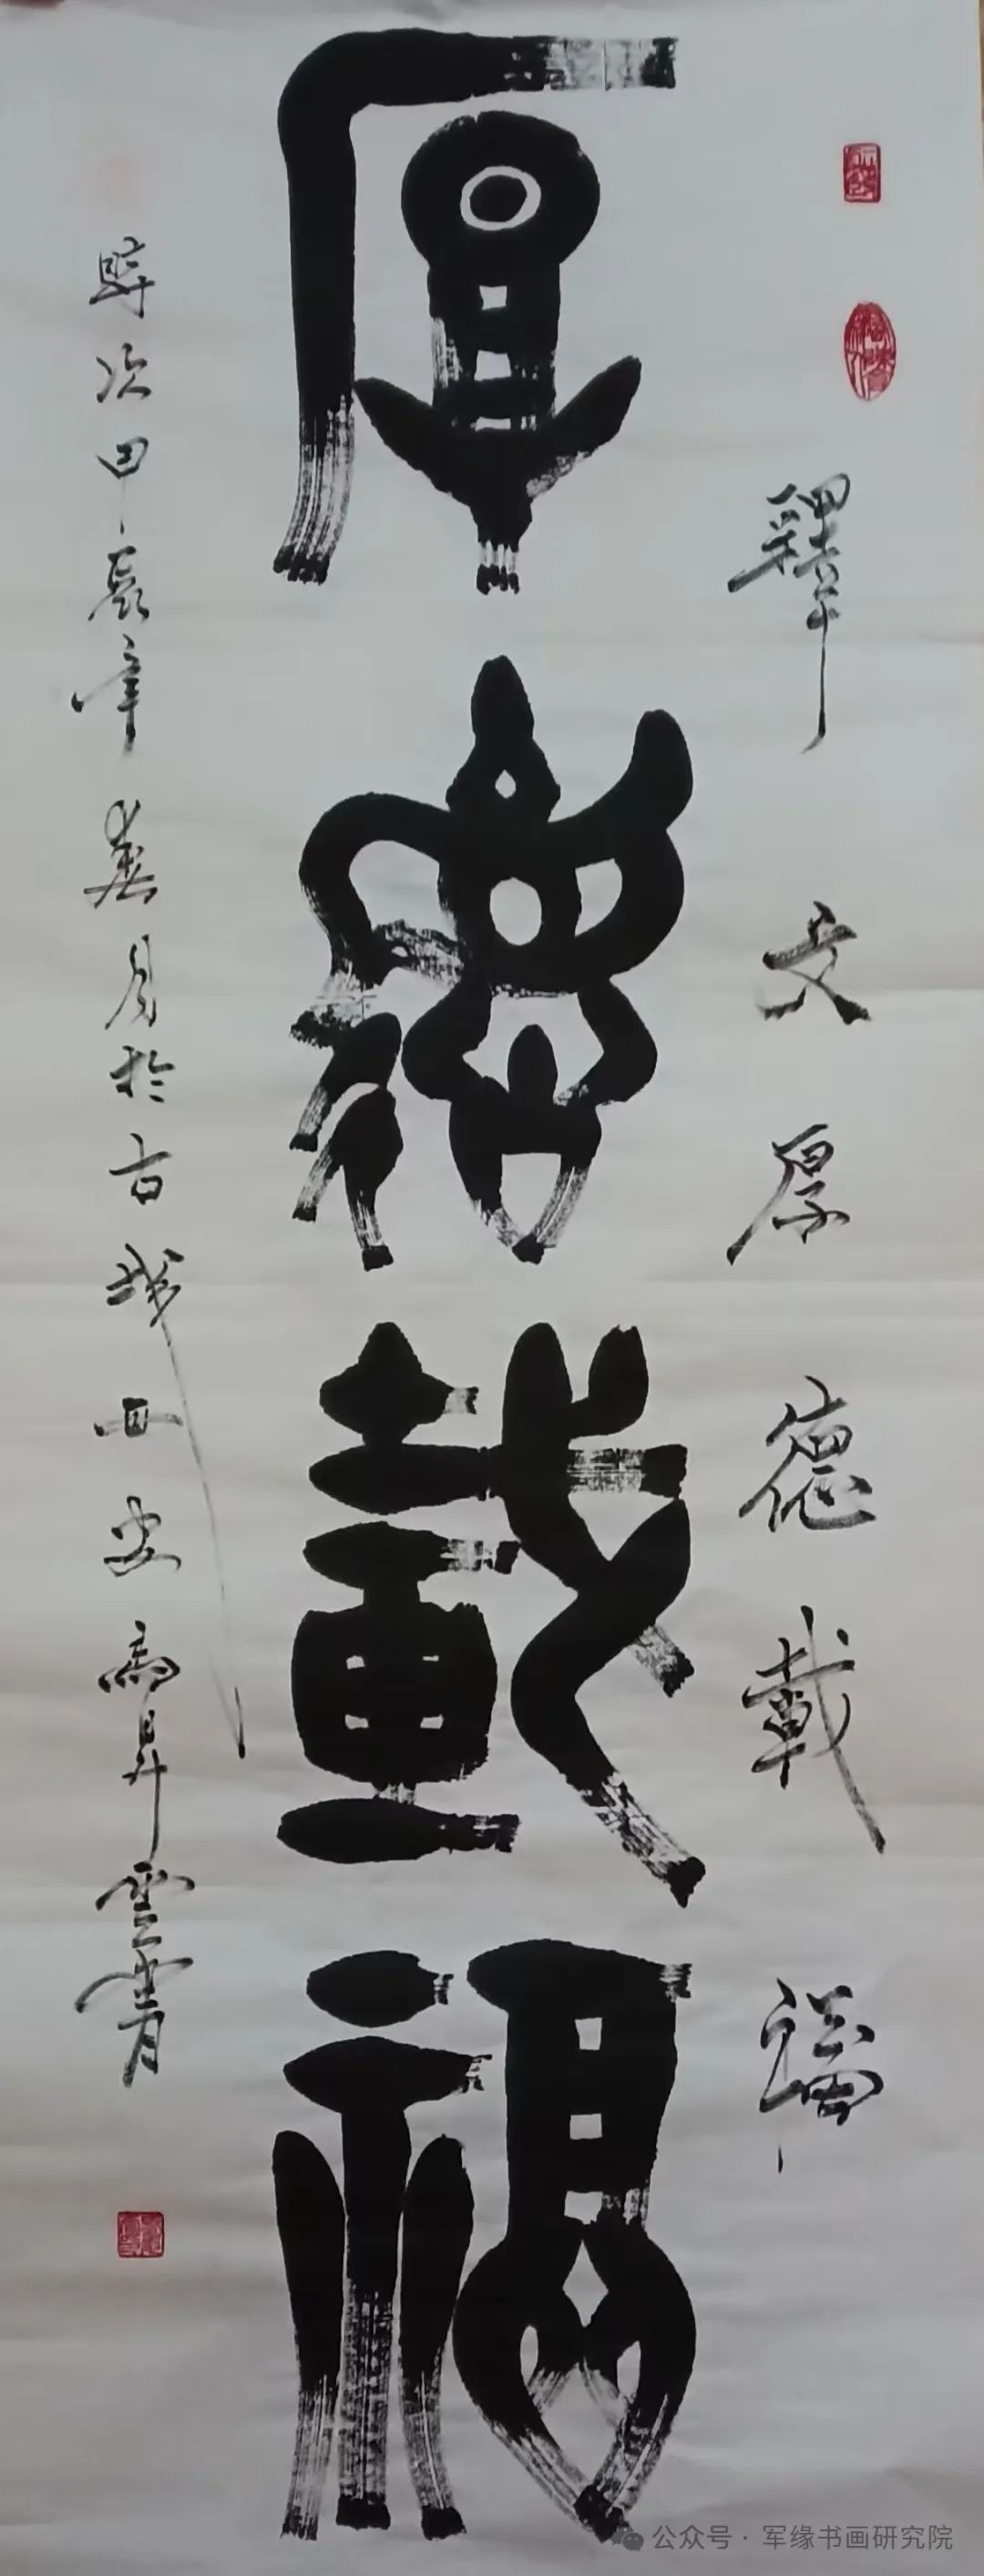 厚德載福
釋文厚德載福
時次甲辰年葭月於古城西安高昇雲霄
公众号·军缘书画研究院